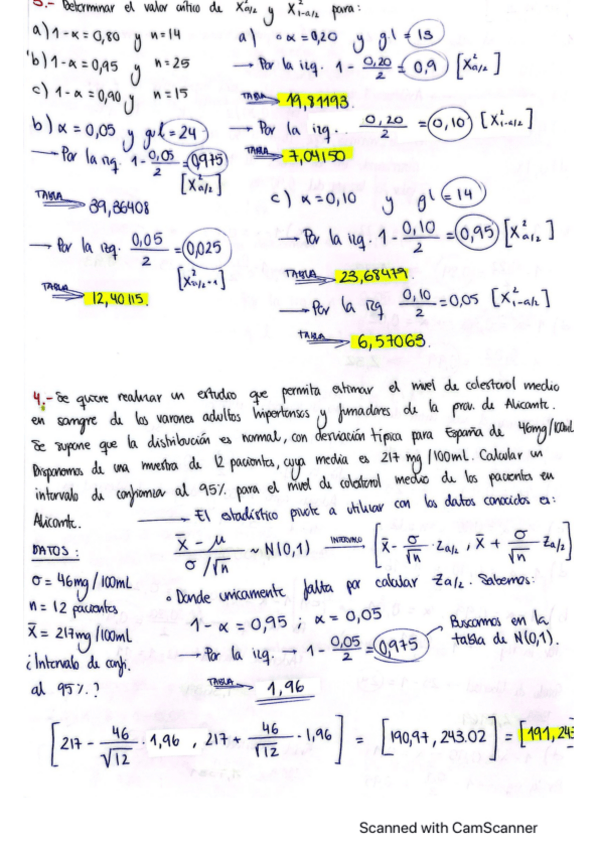 3.- Determinar el valor crítico de X²α/2 y X²1-α/2 para:
a) 1-α = 0,80 y n=14
b) 1-α = 0,95 y n=25
c) 1-α = 0,90 y n=15
a) α = 0,20 y gl = 13
→ Por la izq. 1 - 0,20/2 = 0,9 [X²α/2]
TABLA → 19,81193
→ Por la izq. 0,20/2 = 0,10 [X²1-α/2]
TABLA → 7,04150
b) α = 0,05 y gl = 24
→ Por la izq. 1 - 0,05/2 = 0,975
[X²α/2]
TABLA → 39,36408
→ Por la izq. 0,05/2 = 0,025
TABLA → 12,40115.
c) α = 0,10 y gl = 14
→ Por la izq. 1 - 0,10/2 = 0,95 [X²α/2]
TABLA → 23,68479.
→ Por la izq 0,10/2 = 0,05 [X²1-α/2]
TABLA → 6,57063.
4.- Se quiere realizar un estudio que permita estimar el nivel de colesterol medio
en sangre de los varones adultos hipertensos y fumadores de la prov. de Alicante.
Se supone que la distribución es normal, con desviación típica para España de 46mg/100ml
Disponemos de una muestra de 12 pacientes, cuya media es 217 mg/100mL. Calcular un
intervalo de confianza al 95% para el nivel de colesterol medio de los pacientes en
Alicante.
→ El estadístico pivote a utilizar con los datos conocidos es:
DATOS:
σ = 46mg/100mL
n = 12 pacientes
x̄ = 217mg/100mL
¿Intervalo de conf.
al 95%?
x̄ - μ / σ/√n ~ N(0,1) INTERVALO → [x̄ - σ/√n · Zα/2 , x̄ + σ/√n Zα/2]
• Donde unicamente falta por calcular Zα/2. Sabemos:
1 - α = 0,95 ; α = 0,05
→ Por la izq. → 1 - 0,05/2 = 0,975
Buscamos en la
tabla de N(0,1).
TABLA → 1,96
[217 - 46/√12 · 1,96 , 217 + 46/√12 · 1,96] = [190,97, 243.02] = [191, 243
Scanned with CamScanner